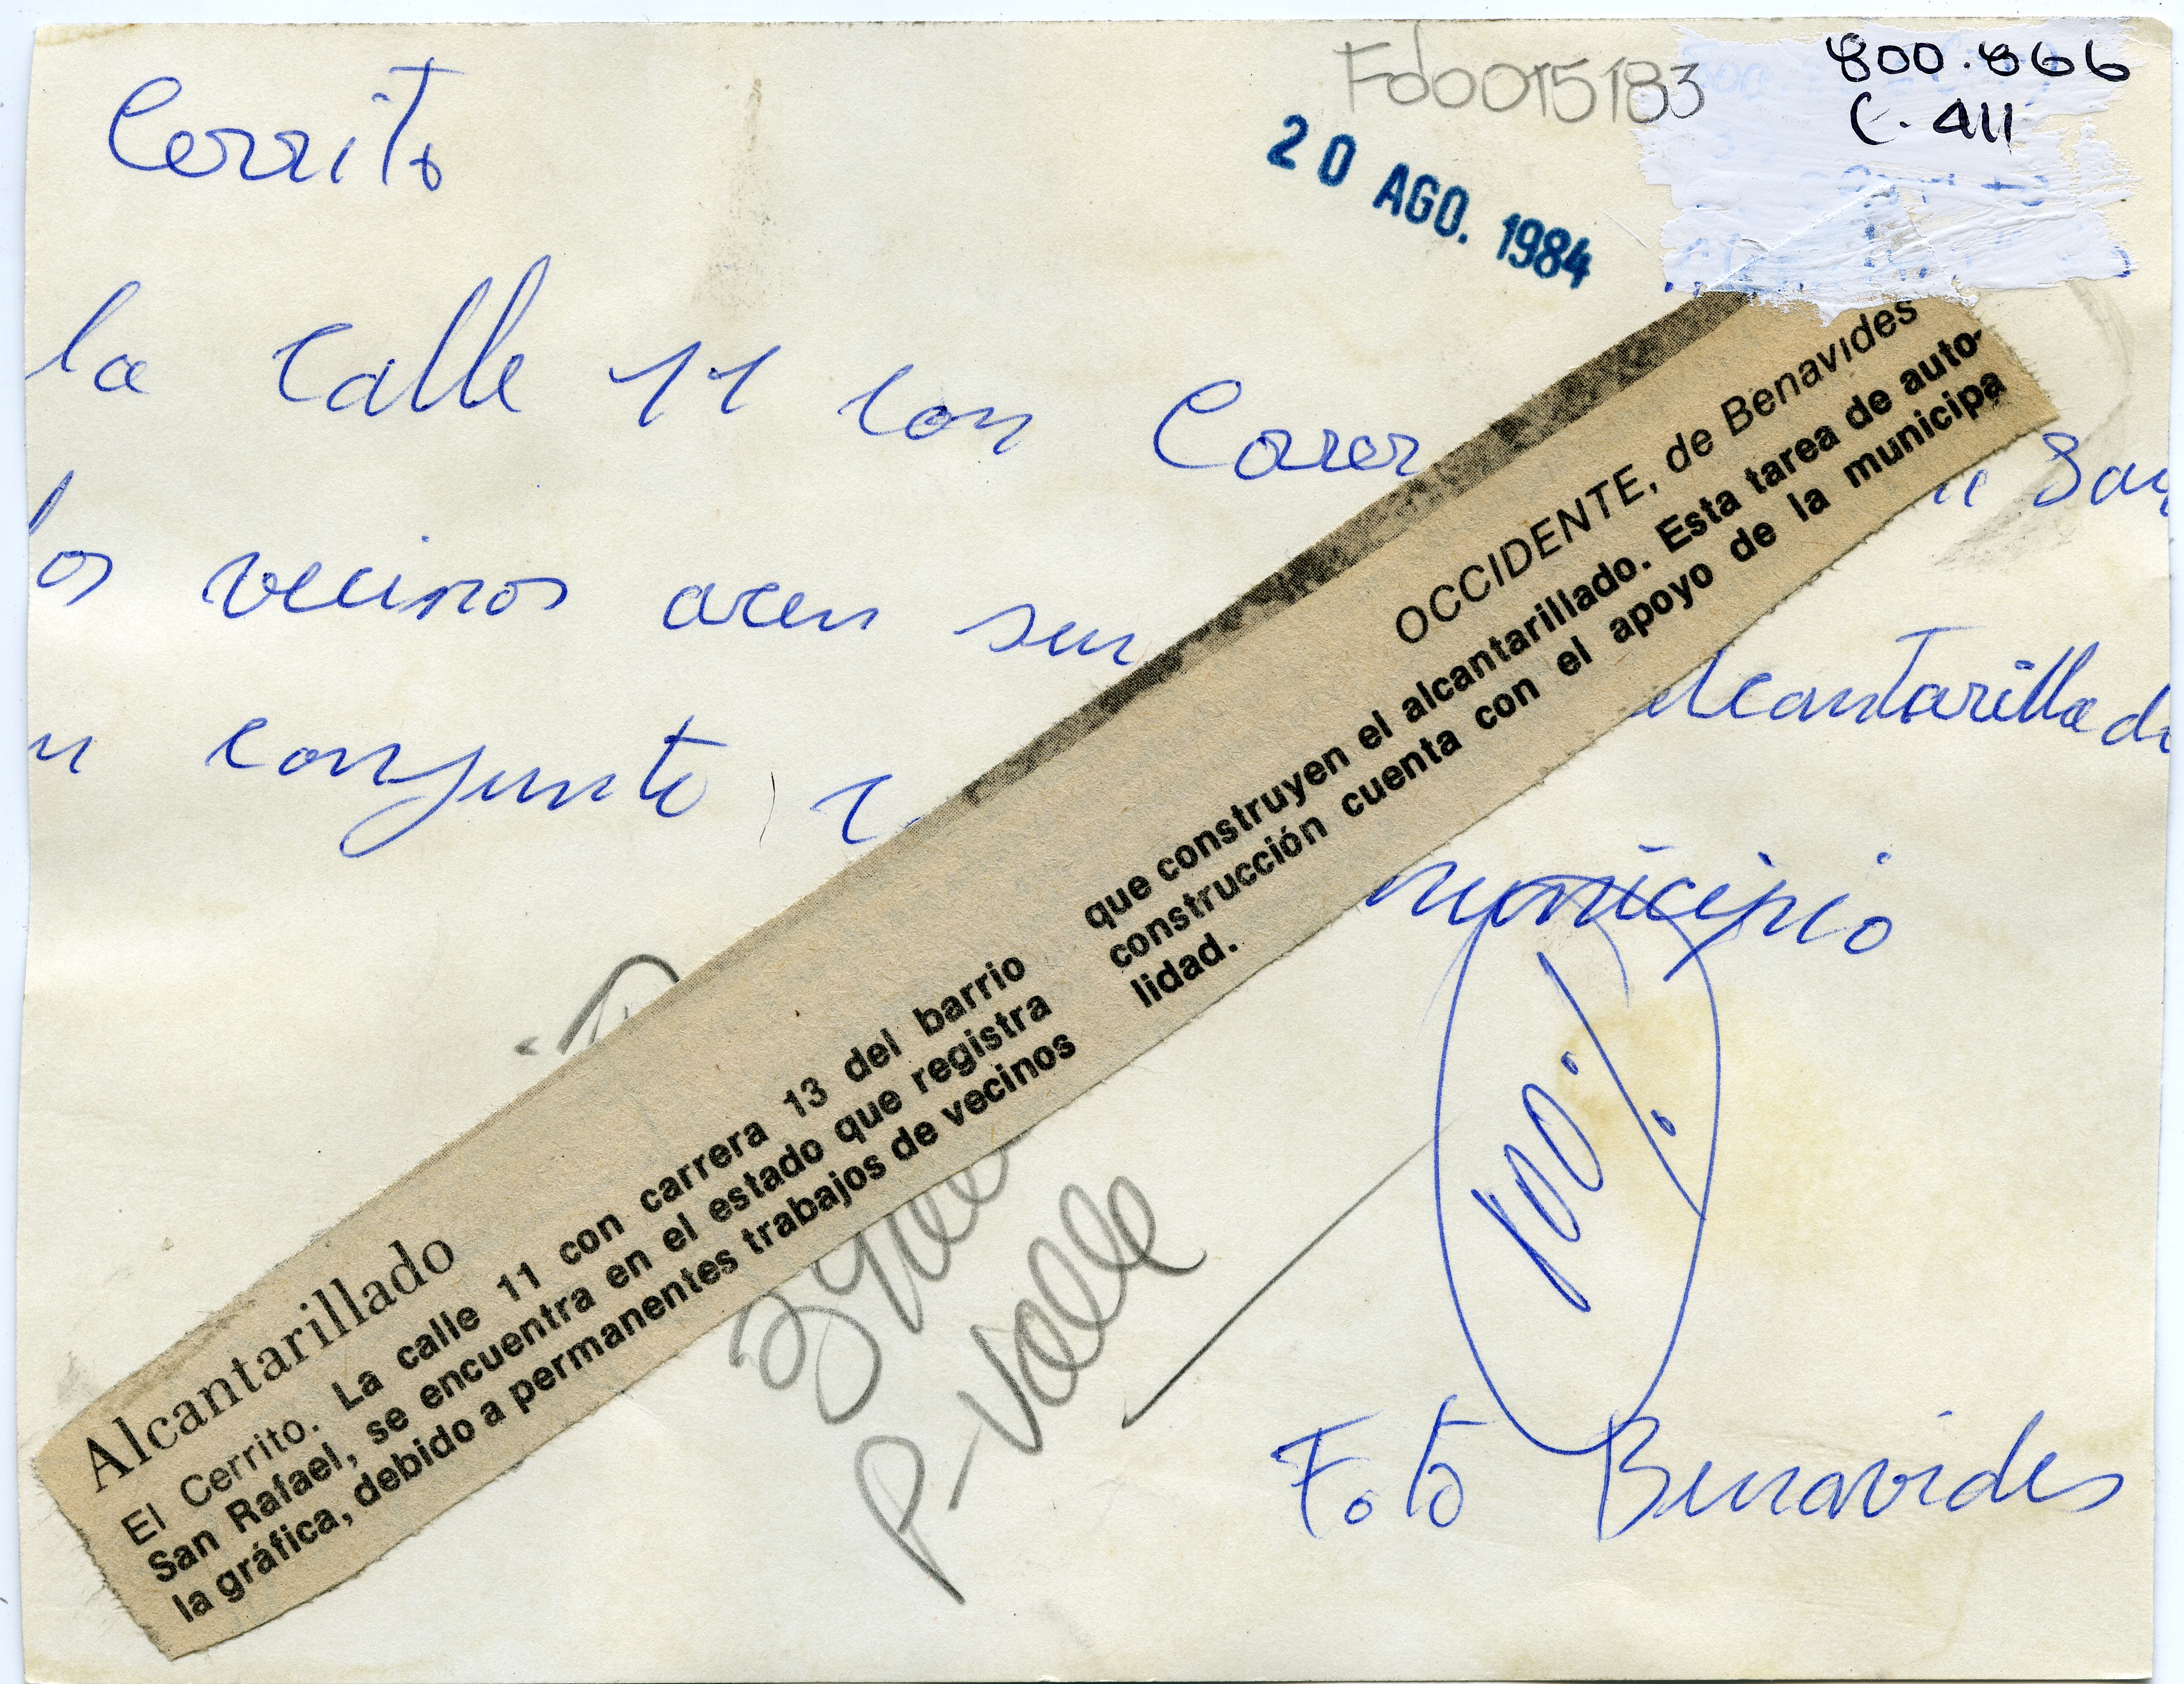 Fdo0015183
800.866
C. 411
20 AGO. 1984
Cerrito
la calle 11 con Carer San
los vecinos acen su
alcantarillado
conjunto
municipio
100%
P-Valle
Foto Benavides
OCCIDENTE, de Benavides
Alcantarillado
El Cerrito. La calle 11 con carrera 13 del barrio
San Rafael, se encuentra en el estado que registra
la gráfica, debido a permanentes trabajos de vecinos
que construyen el alcantarillado. Esta tarea de auto-
construcción cuenta con el apoyo de la municipa
lidad.